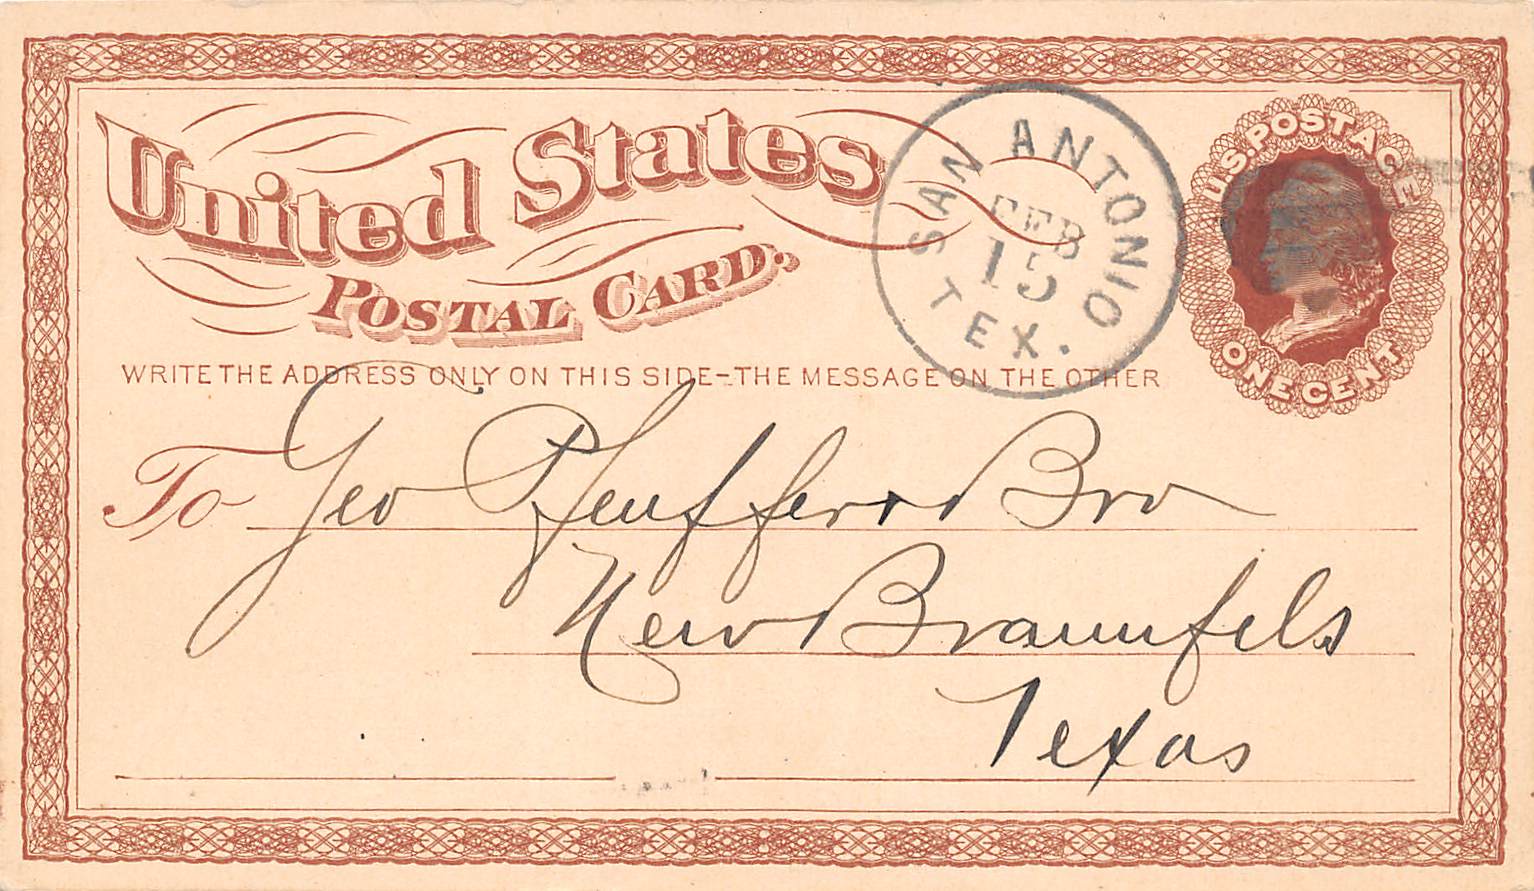 United States
POSTAL CARD.
U.S. POSTAGE
ONE CENT
SAN ANTONIO
FEB
15
TEX.
WRITE THE ADDRESS ONLY ON THIS SIDE-THE MESSAGE ON THE OTHER
To Geo Pfeuffer & Bro
New Braunfels
Texas